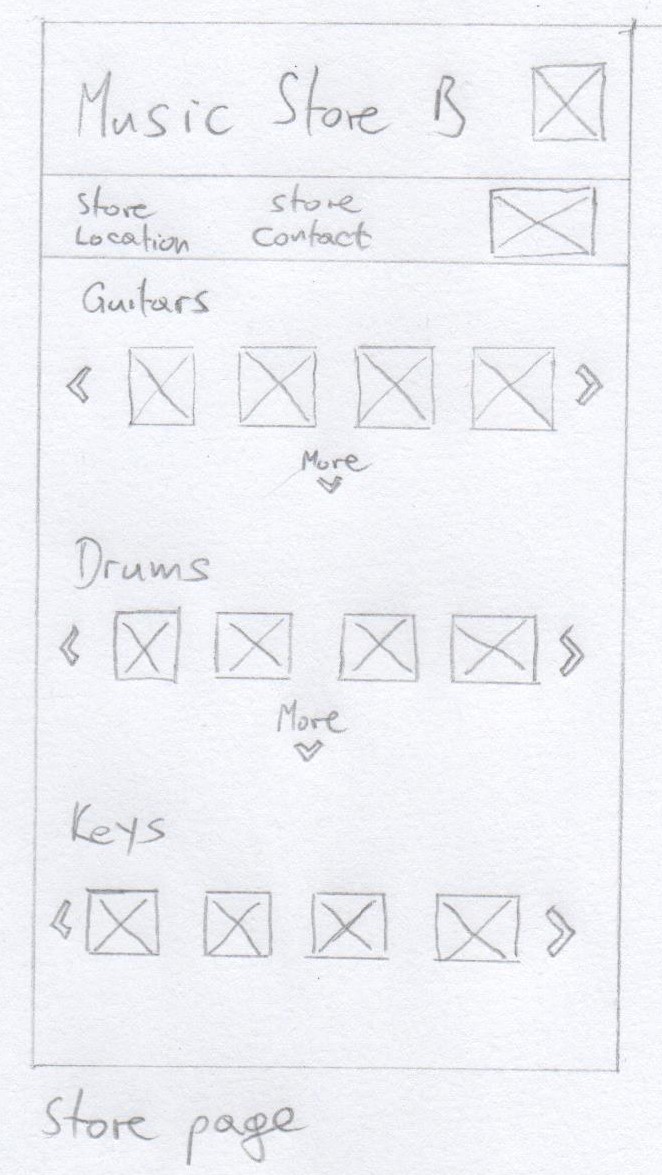 Music Store B
Store Location
store Contact
Guitars
More
Drums
More
Keys
Store page